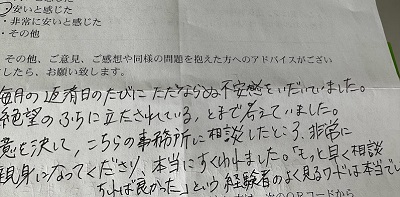 ・安いと感じた
・非常に安いと感じた
・その他
その他、ご意見、ご感想や同様の問題を抱えた方へのアドバイスがござい
ましたら、お願い致します。
毎月の返済日のたびにただならぬ不安感をいだいていました。
絶望のふちに立たされている、とまで考えていました。
意を決して、こちらの事務所に相談したところ、非常に
親身になってくださり、本当にすくわれました。「もっと早く相談
すれば良かった」という経験者のよく見るワードは本当でし
QRコードから